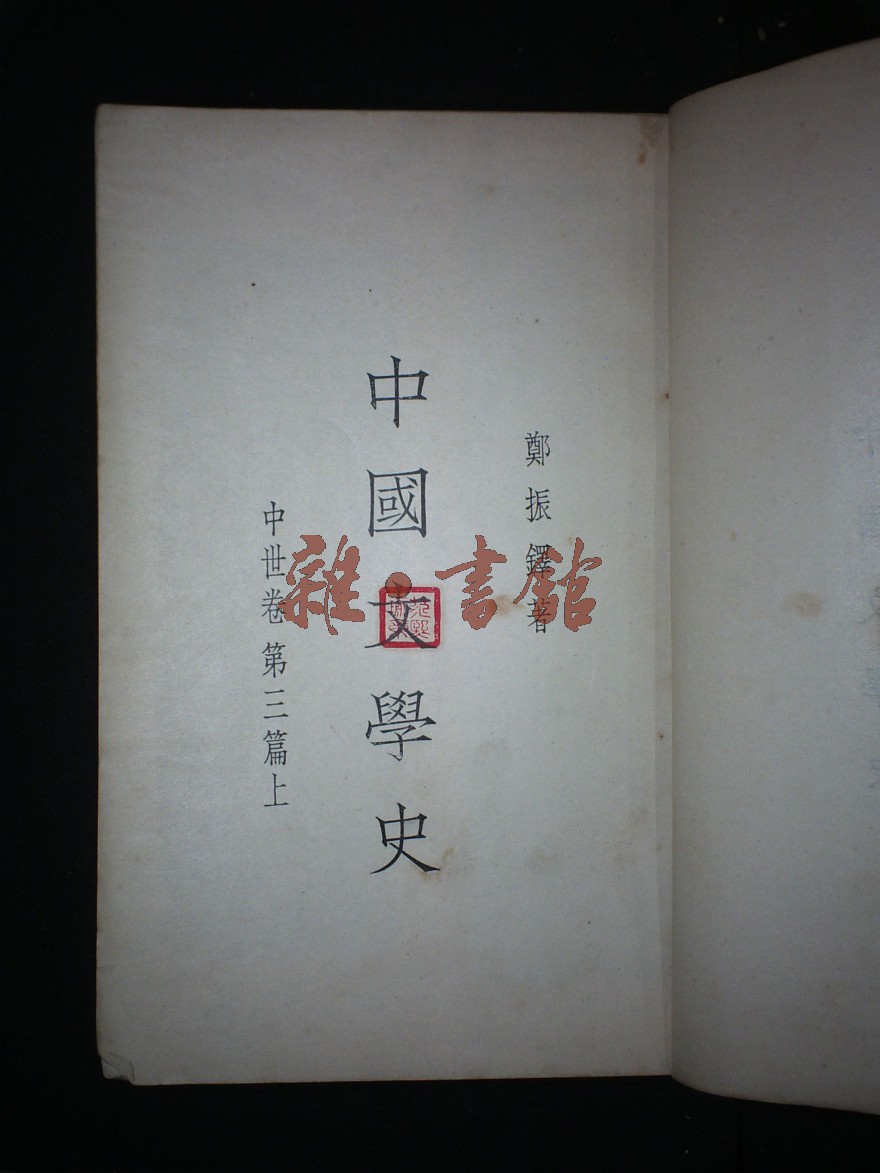 鄭振鐸著
中國文學史
中世卷第三篇上
雜·書館